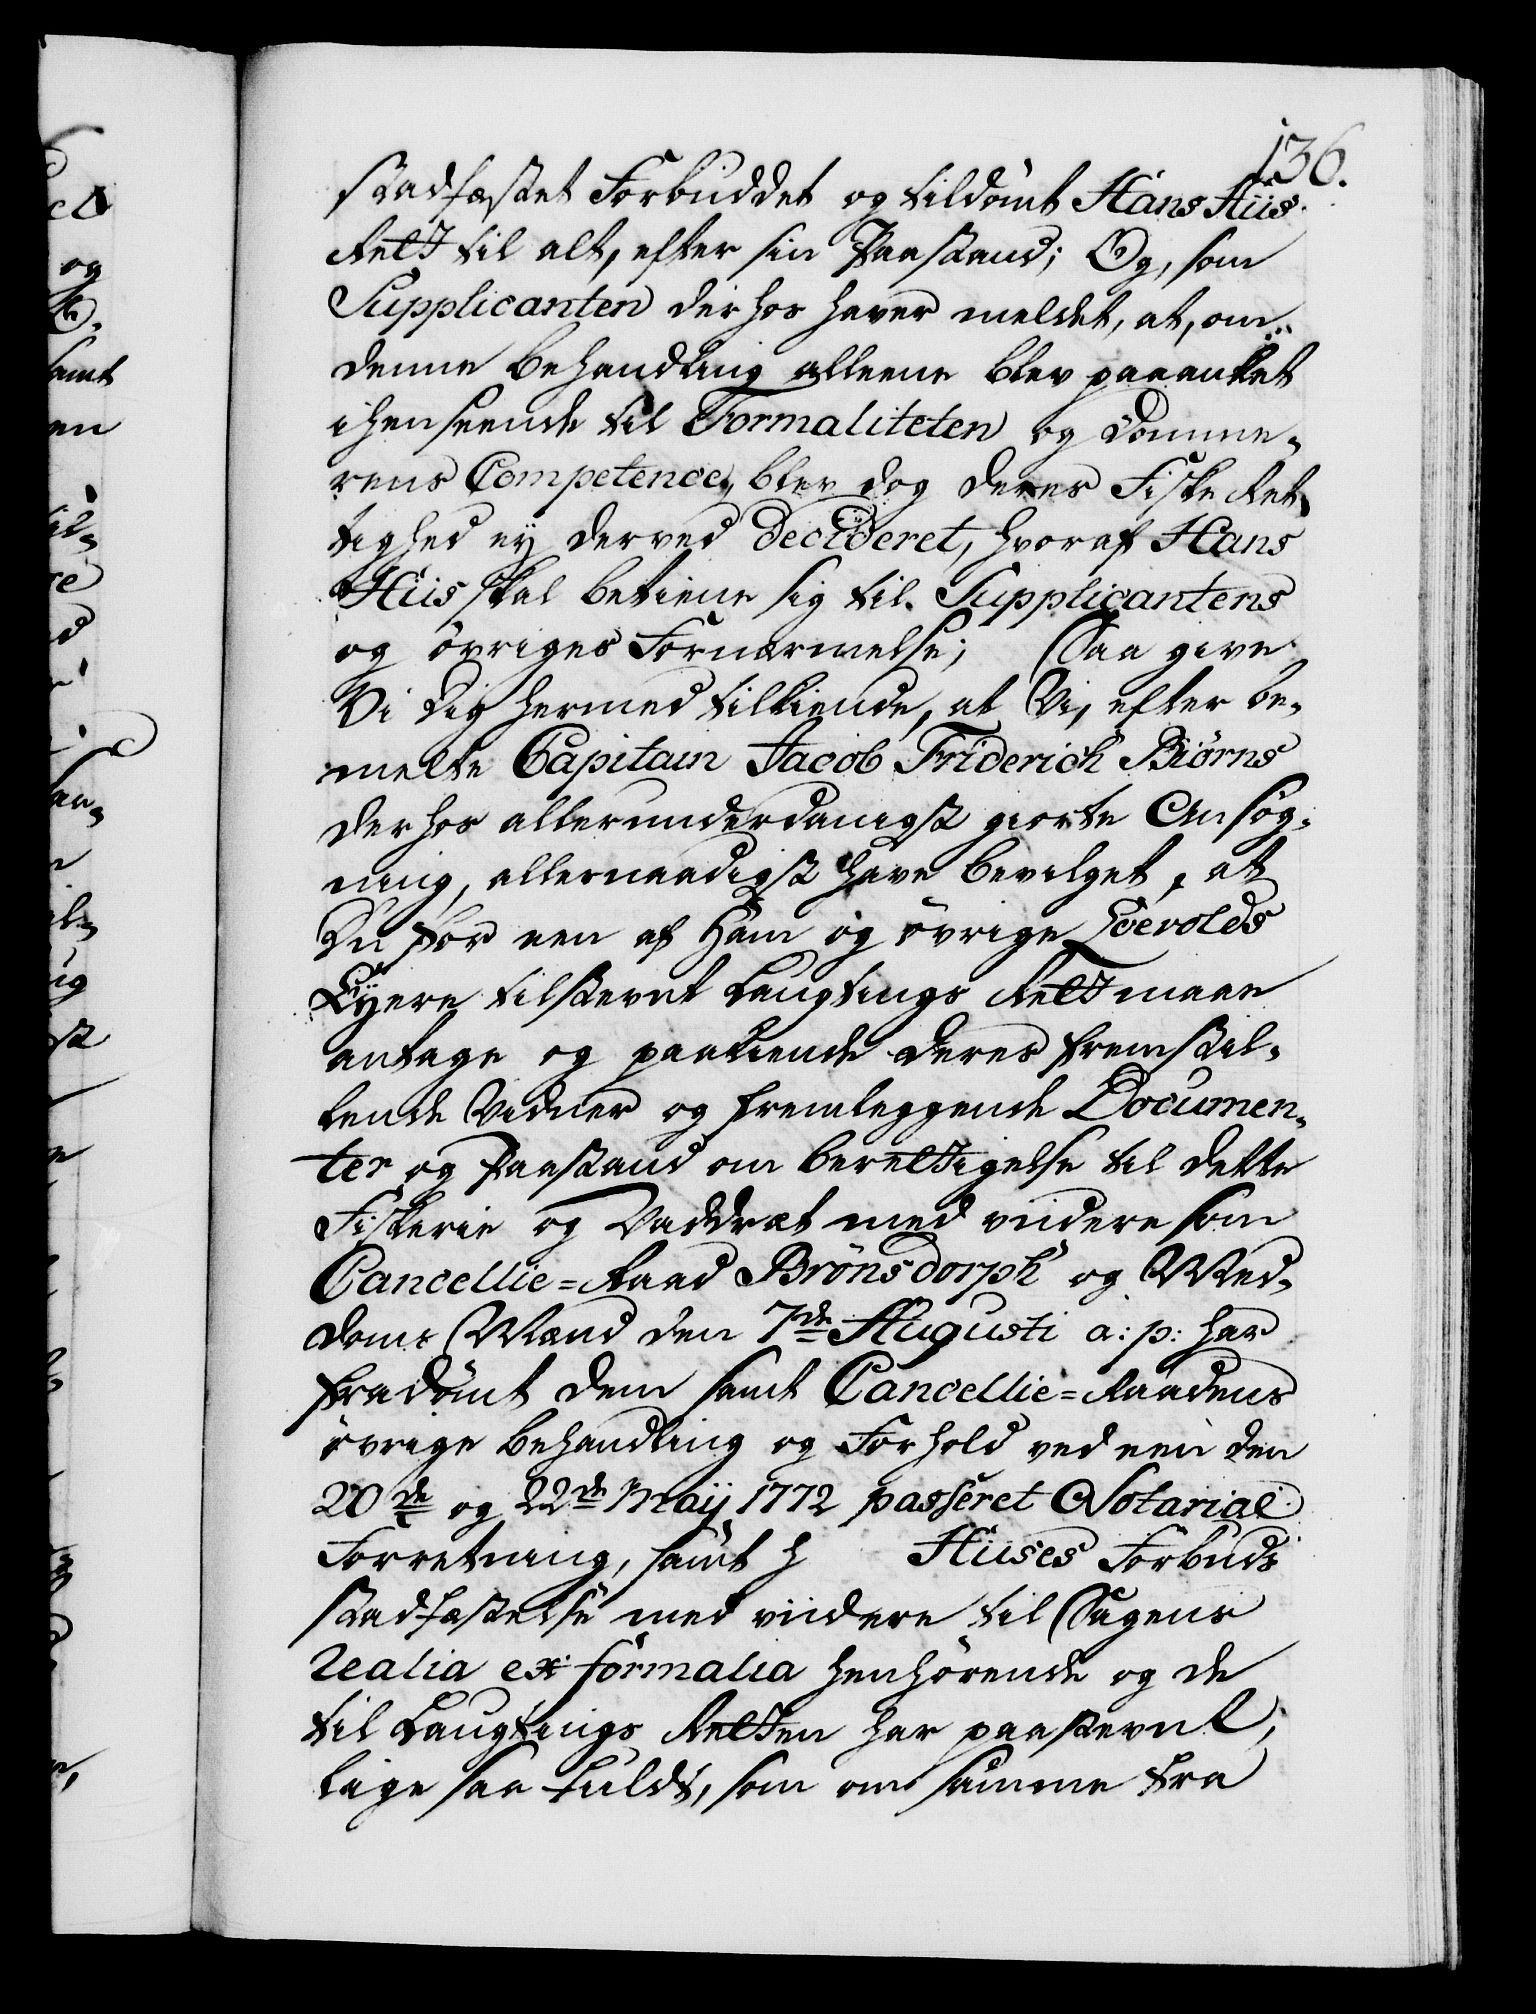 136.
stadfæstet Forbuddet og tildömt Hans Hüs
Rett til alt, efter sin Paastand; Og, som
Supplicanten derhos haver meldet, at, om
denne behandling alleene blev paaanket
i henseende til Formaliteten og Domme-
rens Competence, blev dog deres Fiske Ret-
tighed ey derved decideret, hvoraf Hans
Hüs skal betiene sig til Supplicantens
og övriges Fornærmelse; Saa give
Vi dig hermed tilkiende, at Vi, efter be-
melte Capitain Jacob Friderich Biörns
derhos allerunderdanigst giorte Ansög-
ning, allernaadigst have bevilget, at
Du for een af Ham og övrige Loevolds
Eyere tilstevnt Laugtings Rett maae
antage og paakiende deres fremstil-
lende Vidner og fremleggende Documen-
ter og Paastand om berettigelse til dette
Fiskerie og Vaddræt med viidere som
Cancellie=Raad Brönsdorph og Med-
doms Mænd den 7de Augusti a: p: har
fradömt dem samt Cancellie=Raadens
övrige behandling og Forhold ved een den
20de og 22de Maÿ 1772 passeret Notarial
Forretning, samt H Hüses Forbuds
stadfæstelse med viidere til Sagens
realia et formalia henhörende og de
til Laugtings Retten har paastevnt,
lige saa fuldt, som om samme fra